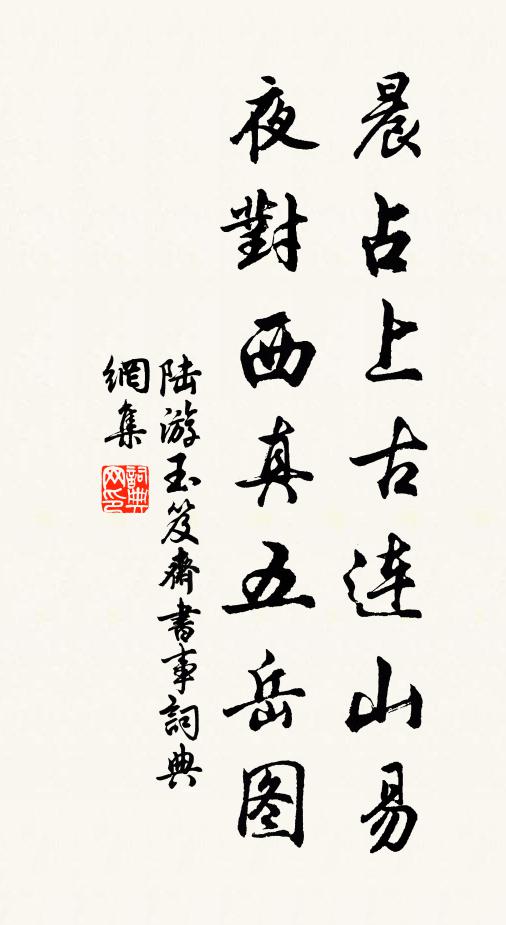 晨占上古连山易
夜對西真五岳图
陆游玉笈齋書事詞典
網集
詞典
网印